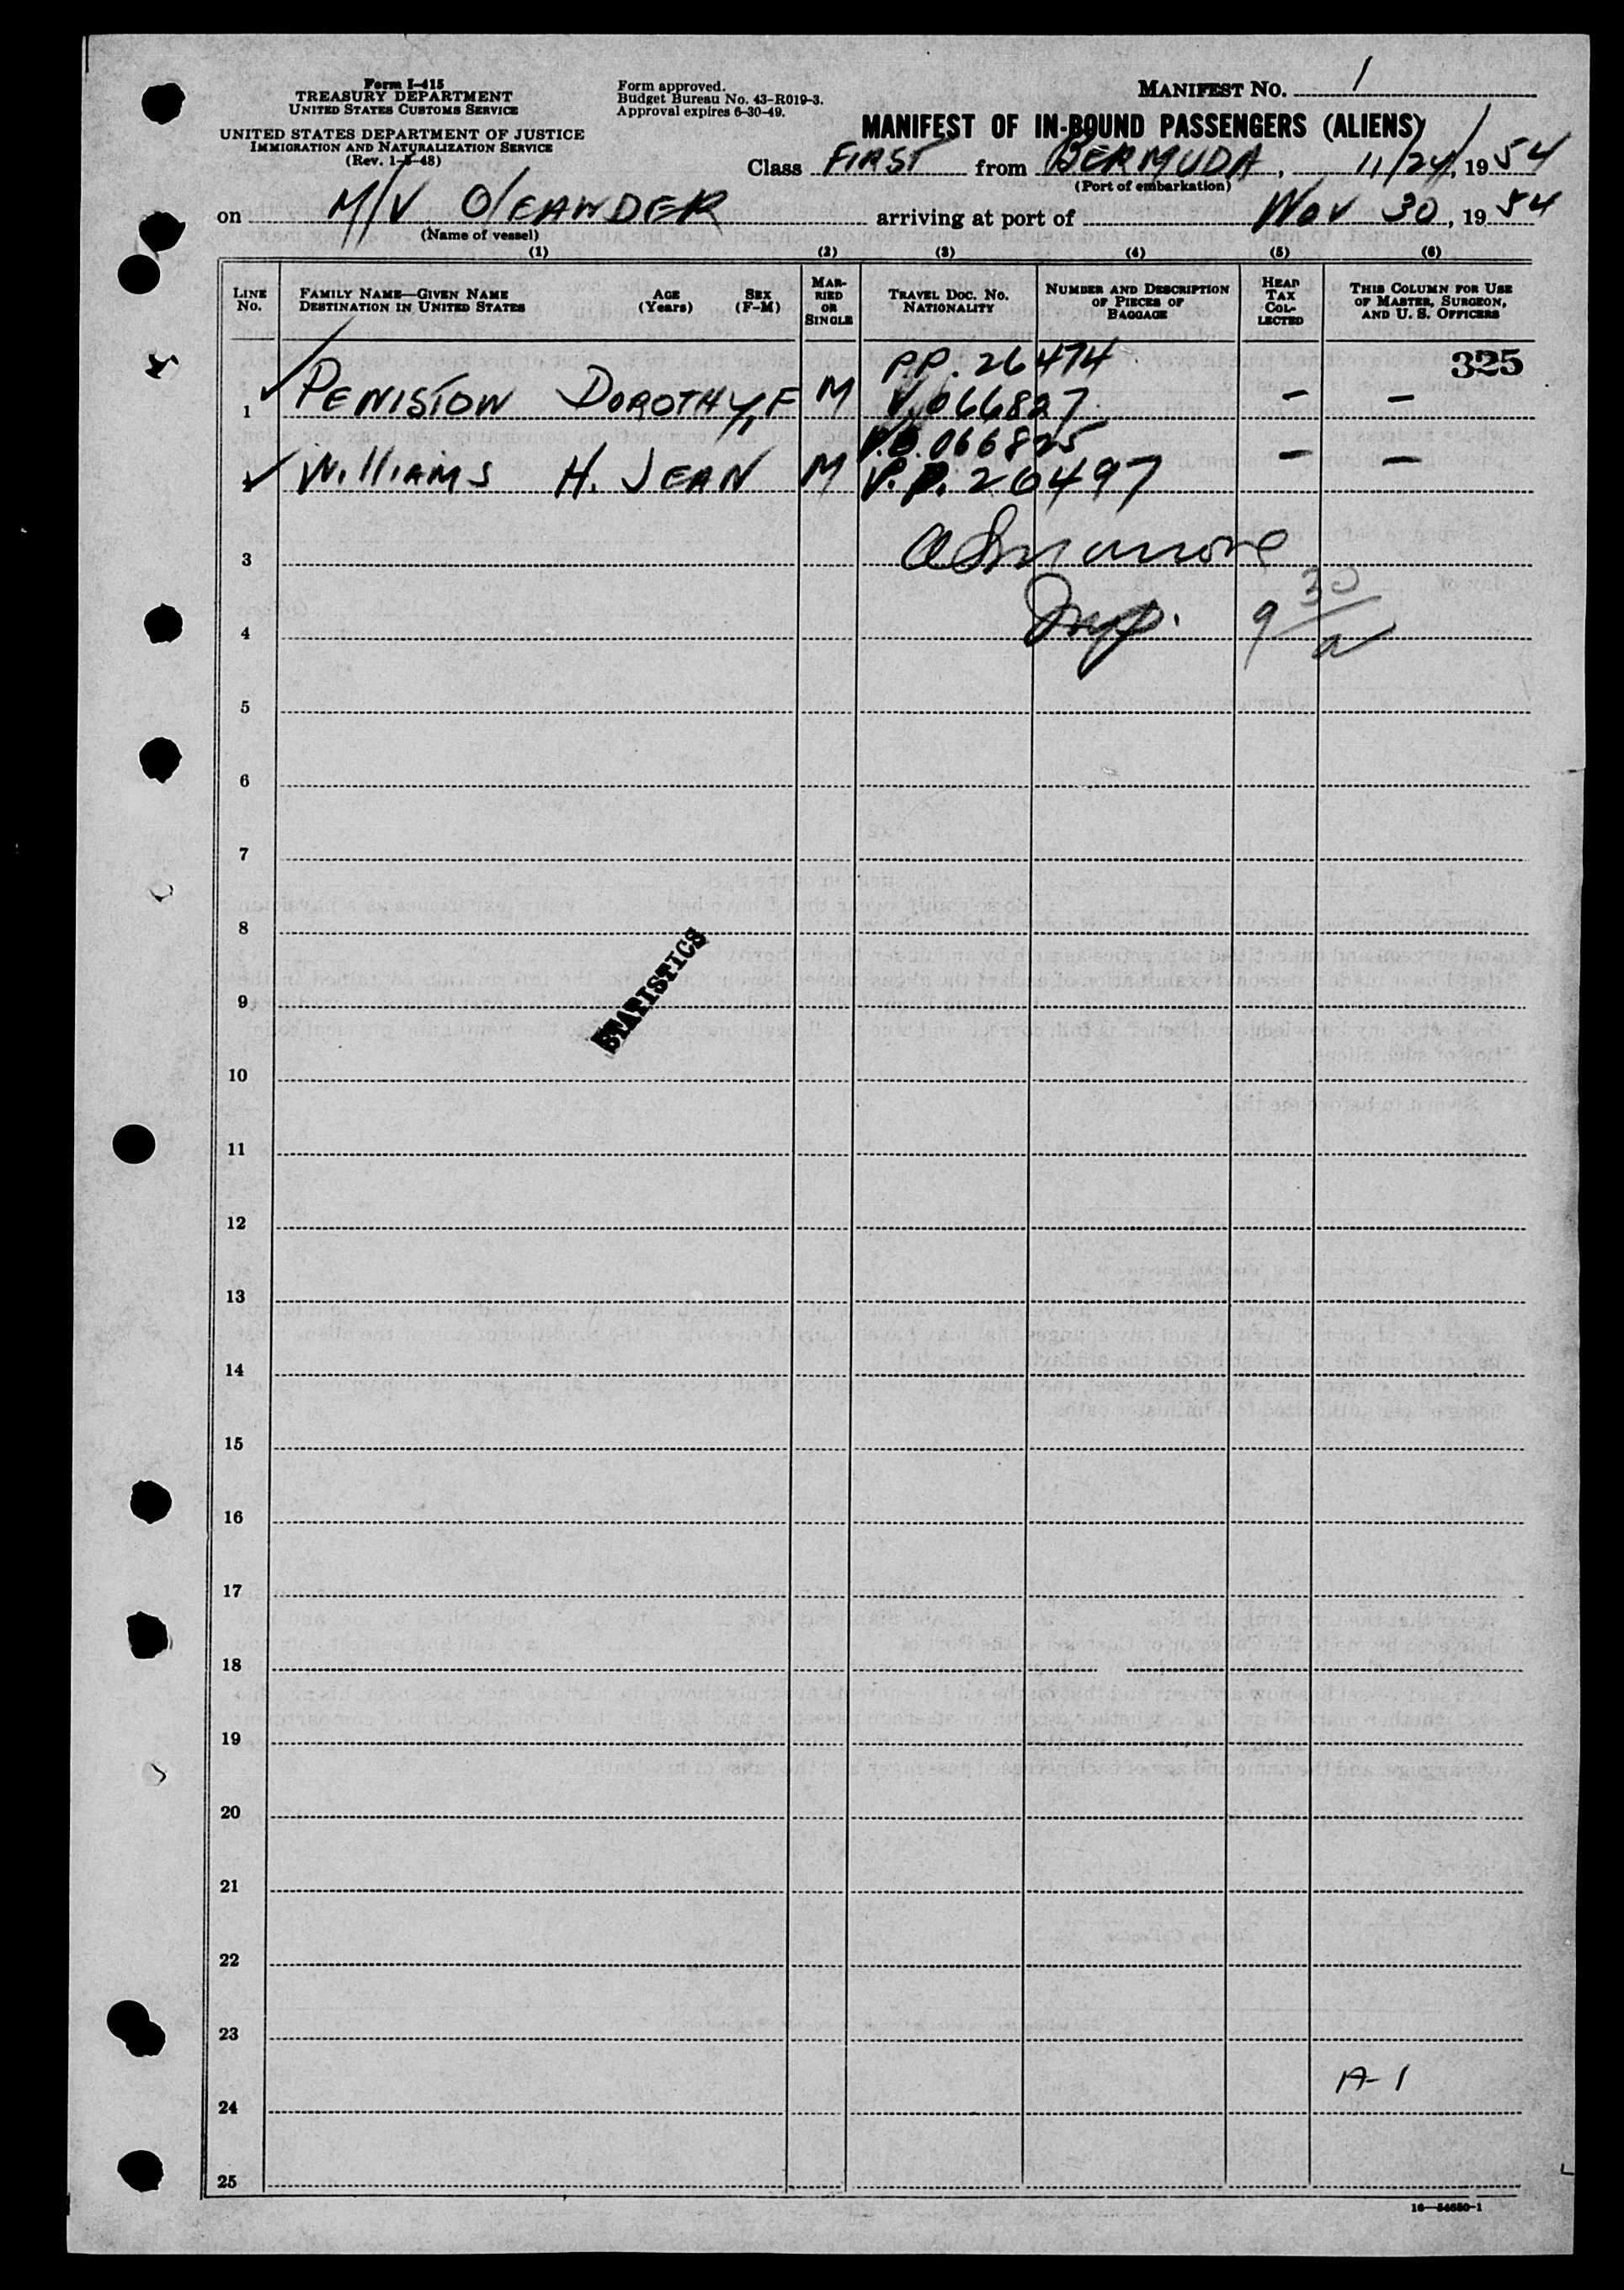 Form I-415
TREASURY DEPARTMENT
UNITED STATES CUSTOMS SERVICE
UNITED STATES DEPARTMENT OF JUSTICE
IMMIGRATION AND NATURALIZATION SERVICE
(Rev. 1-5-48)
Form approved.
Budget Bureau No. 43-R019-3.
Approval expires 6-30-49.
MANIFEST NO. 1
MANIFEST OF IN-BOUND PASSENGERS (ALIENS)
Class FIRST from BERMUDA, 11/24, 1954
(Port of embarkation)
on M/V OLEANDER arriving at port of Nov 30, 1954
(Name of vessel)
(1) (2) (3) (4) (5) (6)
LINE No.
FAMILY NAME—GIVEN NAME
DESTINATION IN UNITED STATES
AGE (Years)
SEX (F-M)
MARRIED OR SINGLE
TRAVEL DOC. NO.
NATIONALITY
NUMBER AND DESCRIPTION OF PIECES OF BAGGAGE
HEAD TAX COLLECTED
THIS COLUMN FOR USE OF MASTER, SURGEON, AND U. S. OFFICERS
325
P.P. 26474
1 PENISTON DOROTHY, F M V.066827 — —
066825
WilliAMS H. JEAN M P.P. 20497 — —
3
4 Insp. 9 30/a
5
6
7
8
STATISTICS
9
10
11
12
13
14
15
16
17
18
19
20
21
22
23
A-1
24
25
16—54650-1